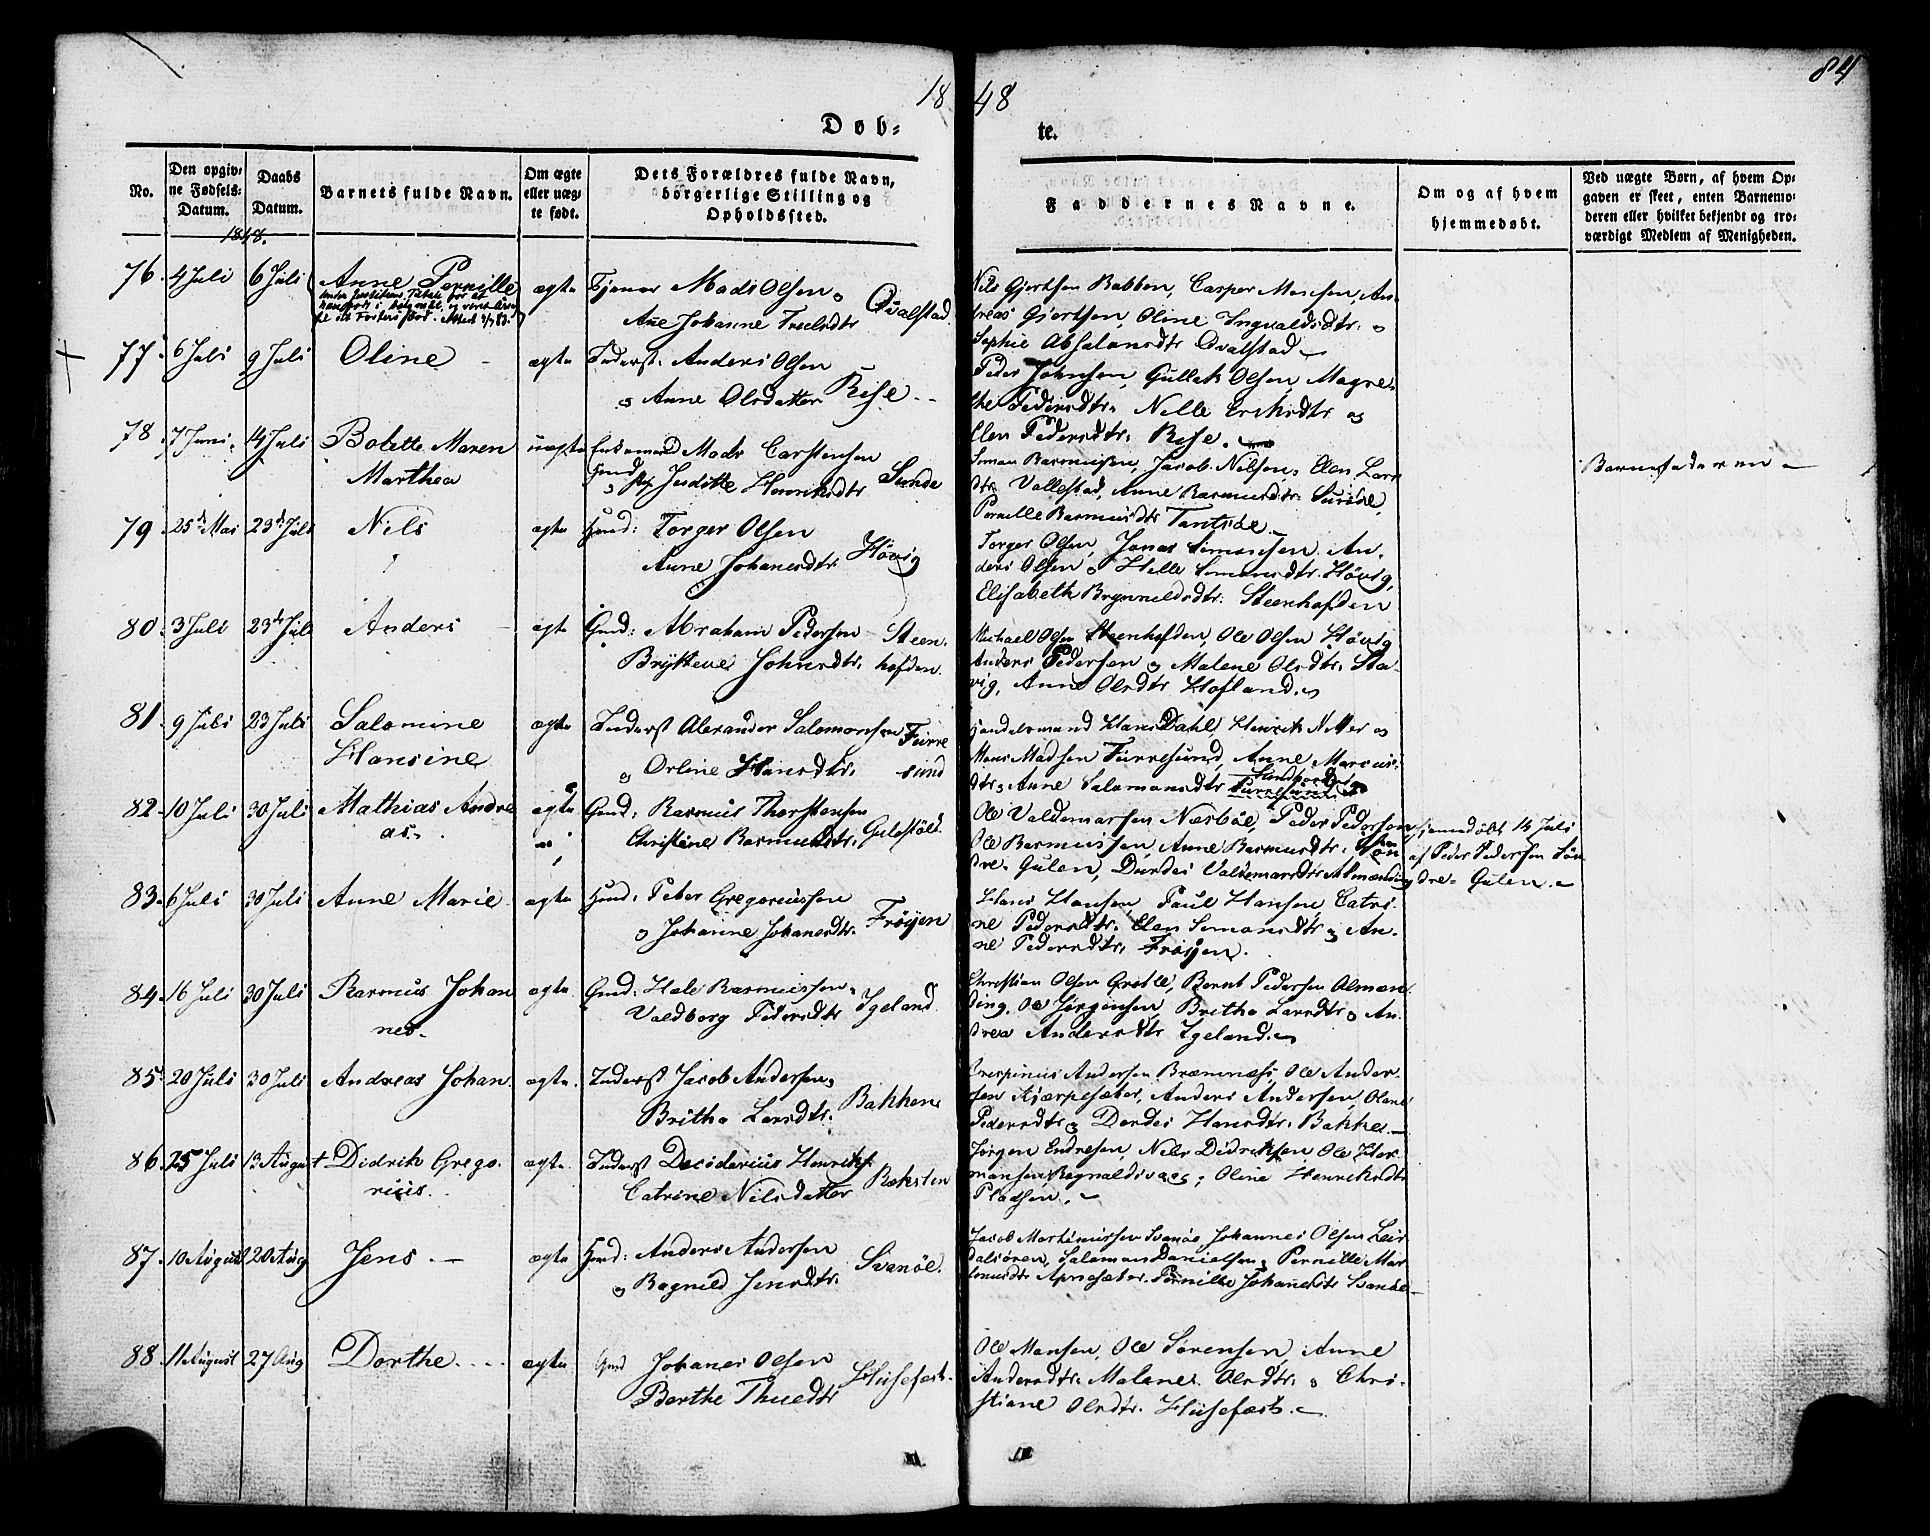 1848
84
Døb-te.
No.
Den opgiv-
ne Fødsels-
Datum.
Daabs
Datum.
Barnets fulde Navn.
Om ægte
eller uæg-
te født.
Dets Forældres fulde Navn,
borgerlige Stilling og
Opholdssted.
Faddernes Navne.
Om og af hvem
hjemmedøbt.
Ved uægte Børn, af hvem Op-
gaven er skeet, enten Barnemo-
deren eller hvilket bekjendt og tro-
værdigt Medlem af Menigheden.
1848.
76. 4 Juli 6 Juli Anne Pernille ægte Tjener Mads Olsen
Ane Johanne Qvalstad
Nils Gjertsen Babben, Casper Monsen, An-
dreas Gjertsen, Oline Ingvaldsdtr: o
Sophie Absalonsdtr Qvalstad
77. 6 Juli 9 Juli Oline ægte Inderst: Anders Olsen
o Anne Olsdatter Rise
Peder Johnsen, Gullak Olsen, Magre-
the Pedersdtr: Nille og
Elen Pedersdtr: Rise.
78. 7 Juni 14 Juli Bolette Maren uægte Enkemand Mads Carstensen
Marthea Judithe Henriksdtr Sunde
Simon Rasmussen, Jacob Nilsen, Elen Lars-
dtr Vallestad, Anne Rasmusdtr: Sunde,
Pernille Rasmusdtr
Barnefaderen
79. 25de Mai 23de Juli Nils ægte Gmd: Torger Olsen
Anne Johanesdtr Høvig
Torger Olsen, Jonas Simonsen, An-
ders Olsen o Helle Simonsdtr. Høvig,
Elisabeth Brynnildsdtr: Steenhofden
80. 3 Juli 23de Juli Anders ægte Gmd: Abraham Pedersen Steen-
Johnsdtr: hofden.
Michael Olsen Steenhofden, Ole Olsen Høvig
Anders Pedersen o Malene Olsdtr: Sta-
vig, Anne Olsdtr Hofland.
81. 9 Juli 23 Juli Salomine ægte Inderst Alexander Salomonsen Furre
Hansine o Orline Hansdtr: sund
Handelsmand Hans Dahl, Henrik Nitter o
Mons Madsen Furresund, Anne Marcus-
dtr: Anne Salomonsdtr
82. 10 Juli 30 Juli Mathias Andre ægte Gmd: Rasmus Thorstensen
as. Christine Rasmusdtr: Gulestøl
Ole Valdemarsen Næsbøe, Peder Pedersen,
Ole Rasmussen, Anne Rasmusdtr: Søn-
dre Gulen, Dordei Valdemarsdtr Almending
hjemmedøbt 14 Juli
af Peder Pedersen Søn
dre Gulen.
83. 6 Juli 30 Juli Anne Marie ægte Gmd: Peter Gregoriussen
o Johanne Johanesdtr. Frøyen
Hans Hansen, Paul Hansen, Catri-
ne Pedersdtr: Elen Simonsdtr o An-
ne Pedersdtr: Frøyen.
84. 16 Juli 30 Juli Rasmus Johan ægte Gmd: Rasmussen
nes. Valdborg Pedersdtr Igeland
Christian Olsen Grotle, Bernt Pedersen Almen-
ding, Ole Jørgensen, Britha Larsdtr: o An-
drea Andersdtr Igeland.
85. 20 Juli 30 Juli Andreas Johan. ægte. Inderst Jacob Andersen,
Britha Larsdtr: Bakken
Crespinus Andersen Bræmnæs, Ole Ander-
sen Kjærpesæter, Anders Andersen, Oline
Pedersdtr o Dordei Hansdtr: Bakke.
86. 25 Juli 13 August + Didrik Grego- ægte. Inderst Desiderius Henriks.
rius. Catrine Nilsdatter Roksten
Jørgen Endresen, Nils Didriksen, Ole Her-
mansen, Oline Henriksdtr
Pladsen.
87. 10 August 20 Aug Jens ægte Gmd: Anders Andersen
o Ragnild Jensdtr: Svanøe.
Jacob Martinussen Svanøe Johannes Olsen Leir-
dalsøren, Salomon Danielsen, Pernille Mar-
Pernille Johanesdtr Svanøe
88. 11 August 27 Aug Dorthe ægte Gmd Johanes Olsen
Berthe Husefest.
Ole Monsen, Ole Sørensen, Anne
Andersdtr: Malene Olsdtr: o Chri-
stiane Olsdtr: Husefest.